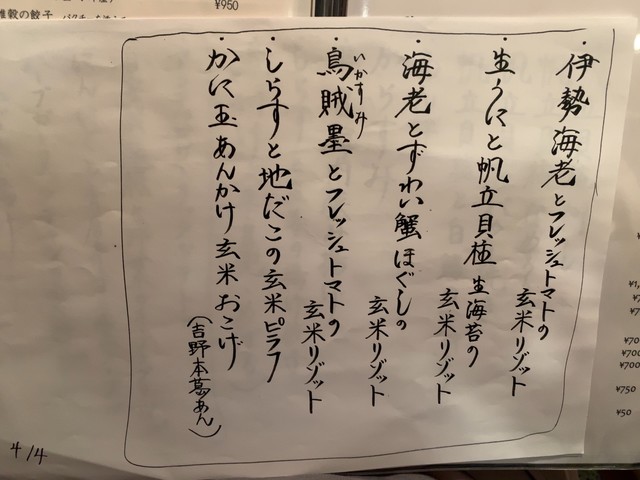 ・伊勢海老とフレッシュトマトの
玄米リゾット
・生うにと帆立貝柱 生海苔の
玄米リゾット
・海老とずわい蟹ほぐしの
玄米リゾット
・烏賊墨とフレッシュトマトの
いかすみ
玄米リゾット
・しらすと地だこの玄米ピラフ
・かに玉あんかけ玄米おこげ
(吉野本葛あん)
4/4
¥950
雑穀の餃子
¥700
¥700
¥750
¥50